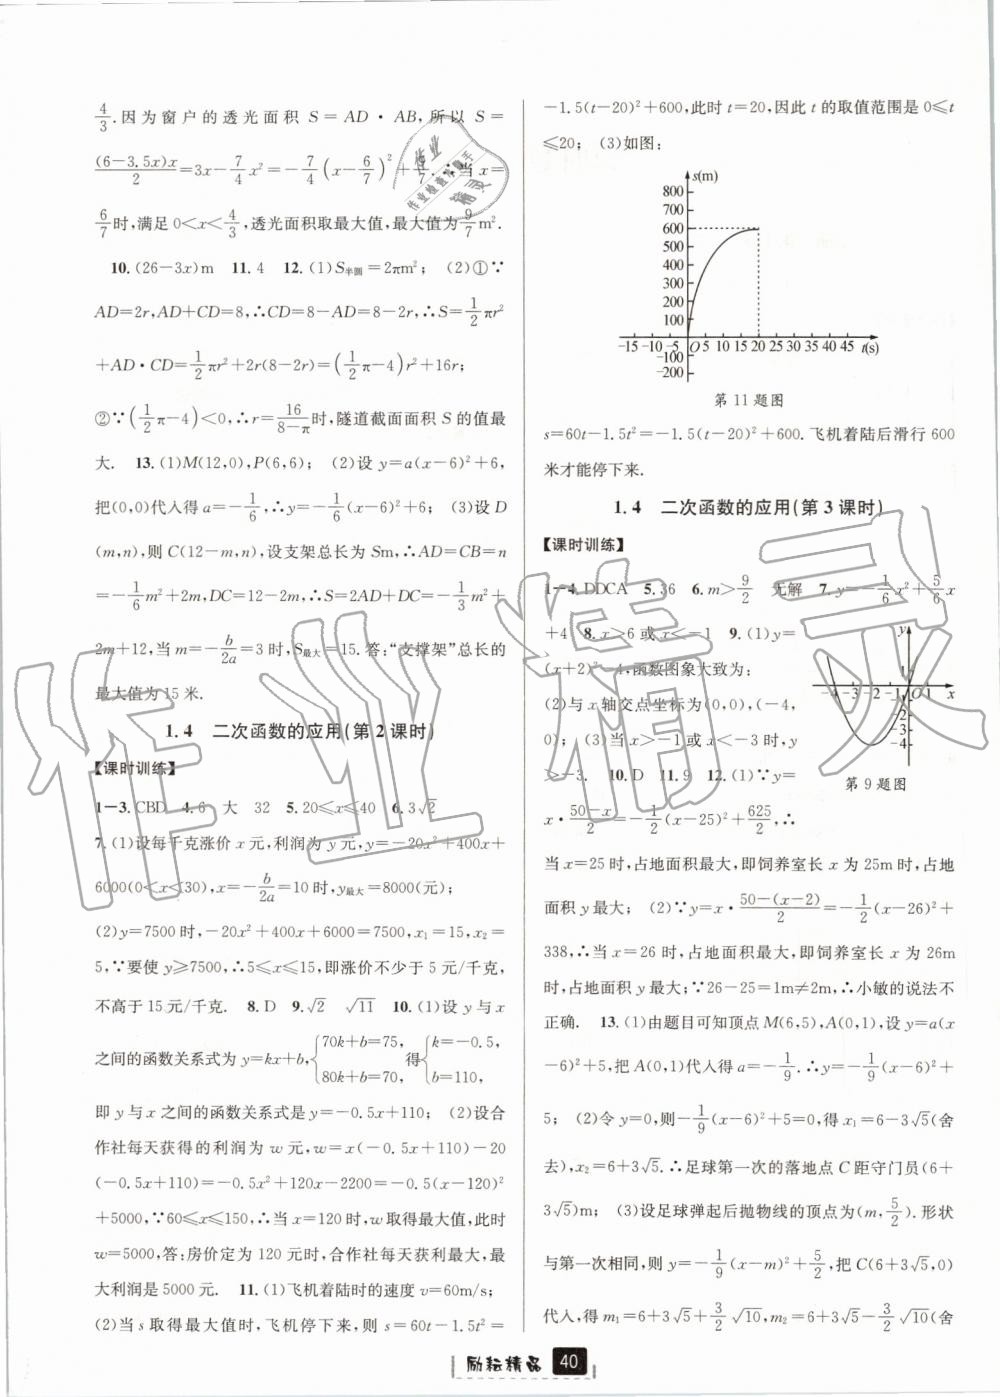 4/3.因为窗户的透光面积 S=AD·AB,所以 S=
(6-3.5x)x/2=3x-7/4x²=-7/4(x-6/7)²+9/7.∴当 x=
6/7时,满足 0<x<4/3,透光面积取最大值,最大值为9/7m².
10.(26-3x)m 11.4 12.(1)S半圆=2πm²; (2)①∵
AD=2r,AD+CD=8,∴CD=8-AD=8-2r,∴S=1/2πr²
+AD·CD=1/2πr²+2r(8-2r)=(1/2π-4)r²+16r;
②∵(1/2π-4)<0,∴r=16/(8-π)时,隧道截面面积 S 的值最
大. 13.(1)M(12,0),P(6,6); (2)设 y=a(x-6)²+6,
把(0,0)代入得 a=-1/6,∴y=-1/6(x-6)²+6; (3)设 D
(m,n),则 C(12-m,n),设支架总长为 Sm,∴AD=CB=n
=-1/6m²+2m,DC=12-2m,∴S=2AD+DC=-1/3m²+
2m+12,当 m=-b/2a=3 时,S最大=15.答:“支撑架”总长的
最大值为 15 米.
1.4 二次函数的应用(第 2 课时)
【课时训练】
1-3.CBD 4.6 大 32 5.20≤x≤40 6.3√2
7.(1)设每千克涨价 x 元,利润为 y 元,y=-20x²+400x+
6000(0<x≤30),x=-b/2a=10 时,y最大=8000(元);
(2)y=7500 时,-20x²+400x+6000=7500,x₁=15,x₂=
5,∵要使 y≥7500,∴5≤x≤15,即涨价不少于 5 元/千克,
不高于 15 元/千克. 8.D 9.√2 √11 10.(1)设 y 与 x
之间的函数关系式为 y=kx+b,{70k+b=75, 80k+b=70, 得{k=-0.5, b=110,
即 y 与 x 之间的函数关系式是 y=-0.5x+110; (2)设合
作社每天获得的利润为 w 元,w=x(-0.5x+110)-20
(-0.5x+110)=-0.5x²+120x-2200=-0.5(x-120)²
+5000,∵60≤x≤150,∴当 x=120 时,w 取得最大值,此时
w=5000,答:房价定为 120 元时,合作社每天获利最大,最
大利润是 5000 元. 11.(1)飞机着陆时的速度 v=60m/s;
(2)当 s 取得最大值时,飞机停下来,则 s=60t-1.5t²=
-1.5(t-20)²+600,此时 t=20,因此 t 的取值范围是 0≤t
≤20; (3)如图:
s(m)
800
700
600
500
400
300
200
100
-15 -10 -5 O 5 10 15 20 25 30 35 40 45 t(s)
-100
-200
第 11 题图
s=60t-1.5t²=-1.5(t-20)²+600.飞机着陆后滑行 600
米才能停下来.
1.4 二次函数的应用(第 3 课时)
【课时训练】
1-4.DDCA 5.36 6.m>9/2 无解 7.y=-1/6x²+5/6x
+4 8.x>6 或 x<-1 9.(1)y=
(x+2)²-4,函数图象大致为:
(2)与 x 轴交点坐标为(0,0),(-4,
0); (3)当 x>-1 或 x<-3 时,y
>-3. 10.D 11.9 12.(1)∵y=
y
1
-4 -3 -2 -1 O 1 x
-2
-3
-4
第 9 题图
x·(50-x)/2=-1/2(x-25)²+625/2,∴
当 x=25 时,占地面积最大,即饲养室长 x 为 25m 时,占地
面积 y 最大; (2)∵y=x·(50-(x-2))/2=-1/2(x-26)²+
338,∴当 x=26 时,占地面积最大,即饲养室长 x 为 26m
时,占地面积 y 最大;∵26-25=1m≠2m,∴小敏的说法不
正确. 13.(1)由题目可知顶点 M(6,5),A(0,1),设 y=a(x
-6)²+5,把 A(0,1)代入得 a=-1/9.∴y=-1/9(x-6)²+
5; (2)令 y=0,则-1/9(x-6)²+5=0,得 x₁=6-3√5(舍
去),x₂=6+3√5.∴足球第一次的落地点 C 距守门员(6+
3√5)m; (3)设足球弹起后抛物线的顶点为(m,5/2).形状
与第一次相同,则 y=-1/9(x-m)²+5/2,把 C(6+3√5,0)
代入,得 m₁=6+3√5+3/2√10,m₂=6+3√5-3/2√10(舍
励耘精品 40
作业精灵